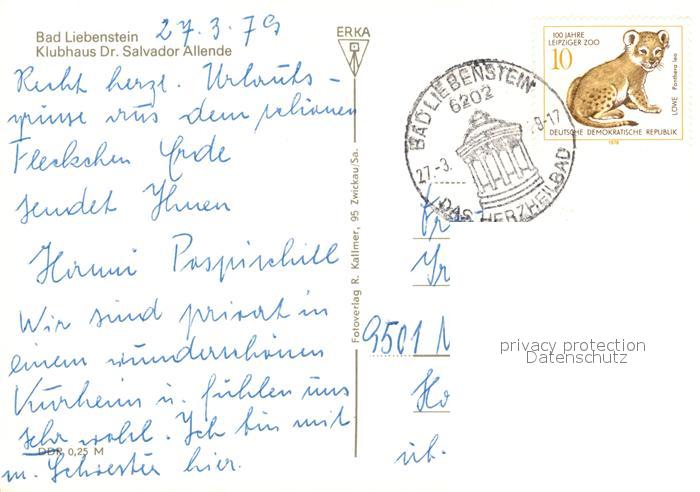 Bad Liebenstein
Klubhaus Dr. Salvador Allende
27.3.79
Recht herzl. Urlaubs-
grüsse aus dem schönen
Fleckchen Erde
sendet Ihnen
Hanni Pospischill
Wir sind privat in
einem wunderschönen
Kurheim u. fühlen uns
sehr wohl. Ich bin mit
m. Schwester hier.
DDR 0,25 M
ERKA
Fotoverlag R. Kallmer, 95 Zwickau/Sa.
BAD LIEBENSTEIN
6202
27.-3.
8-17
DAS HERZHEILBAD
100 JAHRE
LEIPZIGER ZOO
10
LÖWE Panthera leo
DEUTSCHE DEMOKRATISCHE REPUBLIK
1978
Fr
9501
üb.
privacy protection
Datenschutz